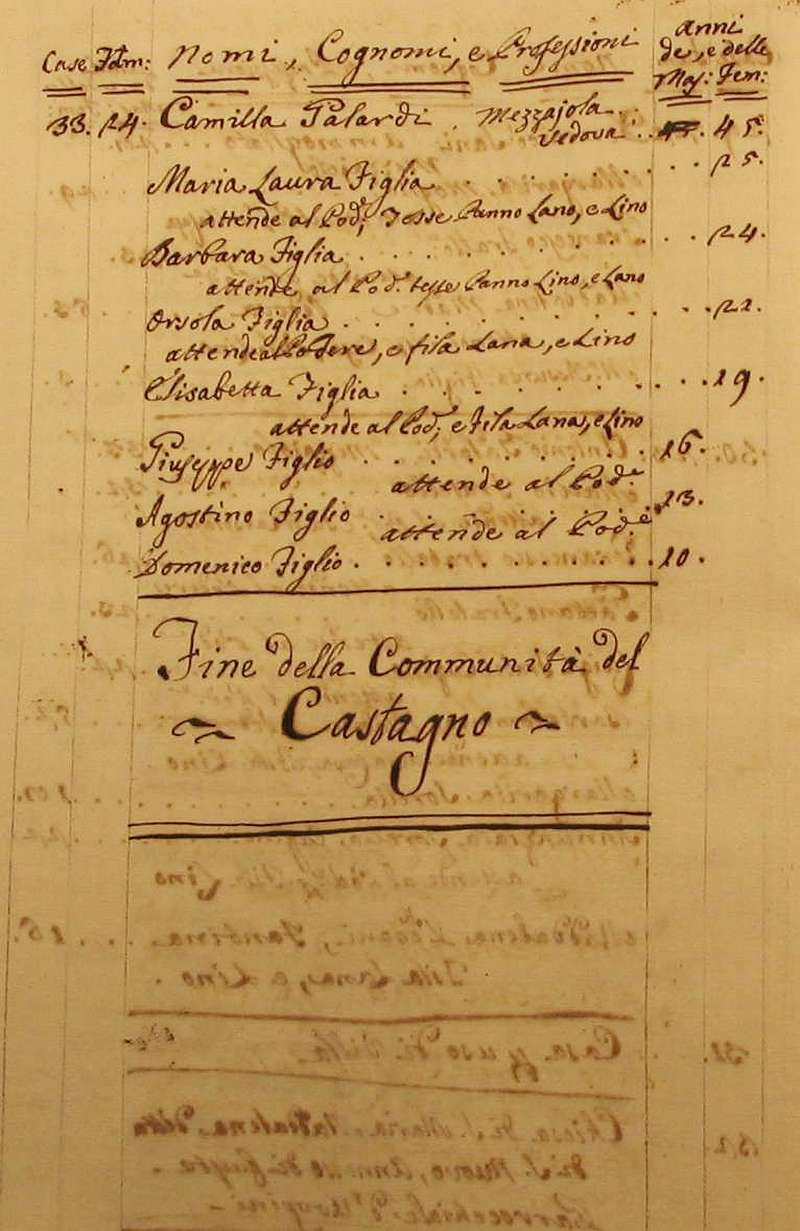 Case Fam: Nomi, Cognomi, e Professioni
anni
de, e delle
Mas: Fem:
33. 24. Camilla Palardi. Mezzajola
vedova . . 45.
Maria Laura Figlia . . . . . . . . 25.
attende al Pod:e Tesse Panno Lano, e Lino
Barbara Figlia . . . . . . . . 24.
attende al Pod:e tesse Panno Lino, e Lano
Orsola Figlia . . . . . . . . 22.
attende al Podere, e fila Lana, e Lino
Elisabetta Figlia . . . . . . . . 19.
attende al Pod:e e Fila Lana, e Lino
Giuseppe Figlio . . . . . . . . 16.
attende al Pod:e
Agostino Figlio . . . . . . . . 13.
attende al Pod:e
Domenico Figlio . . . . . . . . 10.
Fine della Communità del
Castagno